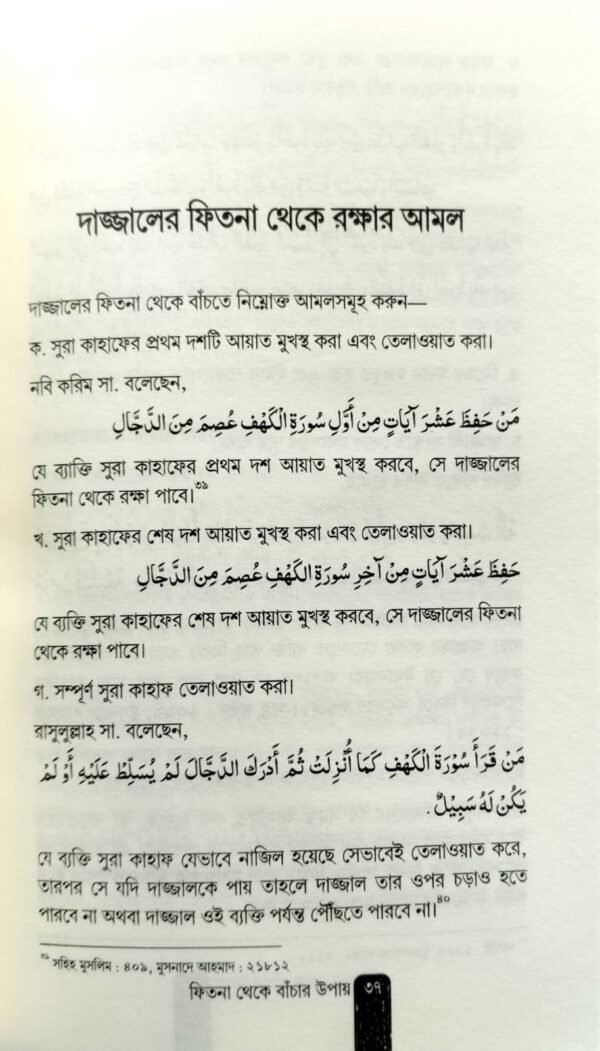 দাজ্জালের ফিতনা থেকে রক্ষার আমল
দাজ্জালের ফিতনা থেকে বাঁচতে নিম্নোক্ত আমলসমূহ করুন—
ক. সুরা কাহাফের প্রথম দশটি আয়াত মুখস্থ করা এবং তেলাওয়াত করা।
নবি করিম সা. বলেছেন,
مَنْ حَفِظَ عَشْرَ آيَاتٍ مِنْ أَوَّلِ سُورَةِ الْكَهْفِ عُصِمَ مِنَ الدَّجَّالِ
যে ব্যক্তি সুরা কাহাফের প্রথম দশ আয়াত মুখস্থ করবে, সে দাজ্জালের
ফিতনা থেকে রক্ষা পাবে।৩৯
খ. সুরা কাহাফের শেষ দশ আয়াত মুখস্থ করা এবং তেলাওয়াত করা।
حَفِظَ عَشْرَ آيَاتٍ مِنْ آخِرِ سُورَةِ الكَهْفِ عُصِمَ مِنَ الدَّجَّالِ
যে ব্যক্তি সুরা কাহাফের শেষ দশ আয়াত মুখস্থ করবে, সে দাজ্জালের ফিতনা
থেকে রক্ষা পাবে।
গ. সম্পূর্ণ সুরা কাহাফ তেলাওয়াত করা।
রাসুলুল্লাহ সা. বলেছেন,
مَنْ قَرَأَ سُوْرَةَ الْكَهْفِ كَمَا أُنْزِلَتْ ثُمَّ أَدْرَكَ الدَّجَّالَ لَمْ يُسَلَّطْ عَلَيْهِ أَوْ لَمْ
يَكُنْ لَهُ سَبِيْلٌ.
যে ব্যক্তি সুরা কাহাফ যেভাবে নাজিল হয়েছে সেভাবেই তেলাওয়াত করে,
তারপর সে যদি দাজ্জালকে পায় তাহলে দাজ্জাল তার ওপর চড়াও হতে
পারবে না অথবা দাজ্জাল ওই ব্যক্তি পর্যন্ত পৌঁছতে পারবে না।৪০
৩৯ সহিহ মুসলিম : ৪০৯, মুসনাদে আহমাদ : ২১৮১২
ফিতনা থেকে বাঁচার উপায় ৩৭